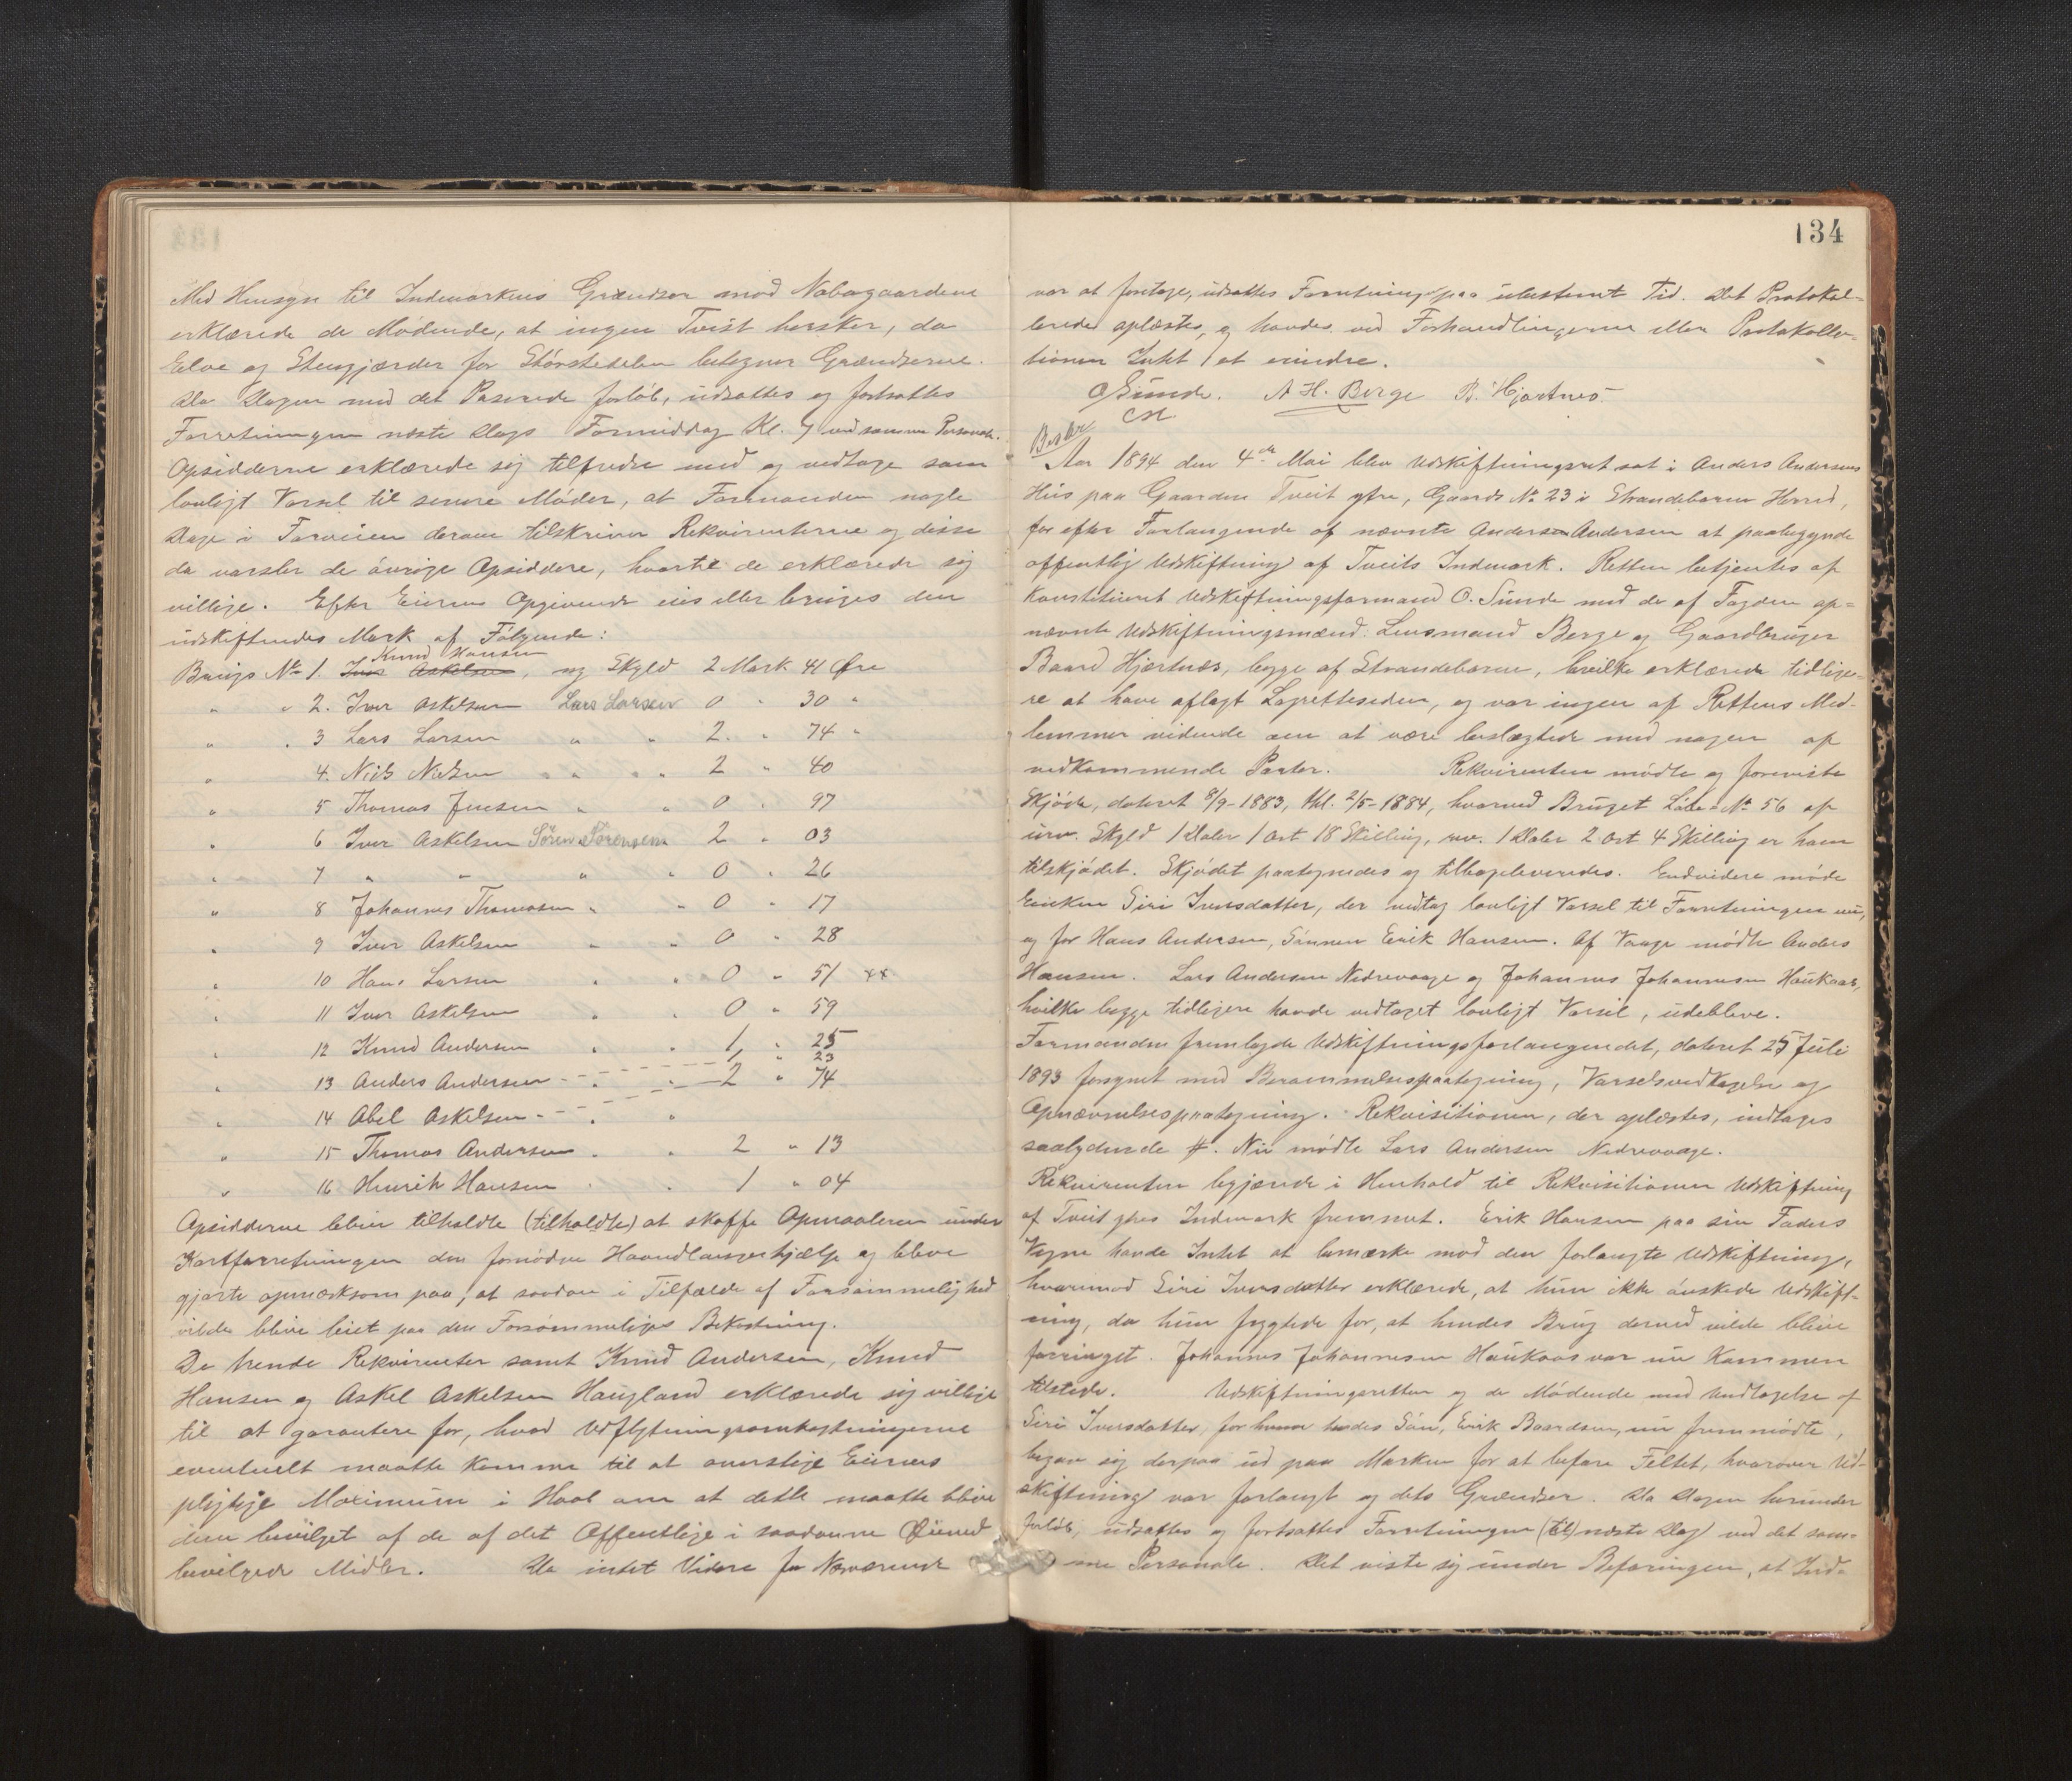 Med Hensyn til Indmarkens Grændser mod Nabogaardene
erklærede de Mødende, at ingen Tvist hersker, da
Elve og Stengjærder for Størstedelen betegner Grændserne.
Da Dagen med det Passerede forløb, udsattes og fortsattes
Forretningen næste Dags Formiddag Kl. 9 ved samme Personale.
Opsidderne erklærede sig tilfredse med og vedtage som
lovligt Varsel til senere Møder, at Formanden nogle
Dage i Forveien derom tilskriver Rekvirenterne og disse
da varsler de øvrige Opsiddere, hvortil de erklærede sig
villige. Efter Eiernes Opgivende eies eller bruges den
udskiftendes Mark af Følgende:
Knud Hansen
Brugs No 1. Iver Askelsen, ny Skyld 2 Mark 41 Øre
" " 2. Iver Askelsen Lars Larsen 0 " 30 "
" " 3 Lars Larsen " " 2. " 74 "
" 4. Niels Nielsen " " 2 " 40
" 5 Thomas Jensen " " 0 " 97
" 6 Iver Askelsen Søren Sørensen 2 " 03
" 7 " " " " 0 " 26
" 8 Johannes Thomassen " " 0 " 17
" 9 Iver Askelsen " " 0 " 28
" 10 Hans Larsen " " 0 " 51
" 11 Iver Askelsen " " 0 " 59
" 12 Knud Andersen " " 1 " 25
1 " 23
" 13 Anders Andersen " " 2 " 74
" 14 Abel Askelsen " "
" 15 Thomas Andersen " " 2 " 13
" 16 Henrik Hansen " " 1 " 04
Opsidderne blev tilholdte (tilholdte) at skaffe Opmaaleren under
Kartforretningen den fornødne Haandlangerhjælp og bleve
gjorte opmærksom paa, at saadan i Tilfælde af Forsømmelighed
vilde blive leiet paa den Forsømmeliges Bekostning.
De trende Rekvirenter samt Knud Andersen, Knud
Hansen og Askel Askelsen Haugland erklærede sig villige
til at garantere for, hvad Udflytningsomkostningerne
eventuelt maatte komme til at overstige Eiernes
pligtige Maximum i Haab om at dette maatte blive
dem bevilget af de af det Offentlige i saadanne Øiemed
bevilgede Midler. Da intet Videre for Nærværende
134
var at foretage, udsattes Forretningen paa ubestemt Tid. Det Protokol-
lerede oplæstes, og havdes ved Forhandlingerne eller Protokolla-
tionen Intet at erindre.
O Sunde. A H. Berge B. Hjartnes
Aar 1894 den 4de Mai blev Udskiftningsret sat i Anders Andersens
Hus paa Gaarden Tveit ytre, Gaards No 23 i Strandebarm Herred,
for efter Forlangende af nævnte Andersen Andersen at paabegynde
offentlig Udskiftning af Tveits Indmark. Retten betjentes af
Konstitueret Udskiftningsformand O. Sunde med de af Fogden op=
nævnte Udskiftningsmænd: Lensmand Berge og Gaardbruger
Baard Hjartnes, begge af Strandebarm, hvilke erklærede tidlige-
re at have aflagt Lagretteseden, og var ingen af Rettens Med-
lemmer vidende om at være beslægtede med nogen af
vedkommende Parter. Rekvirenten mødte og foreviste
Skjøde, dateret 8/9-1883, thl. 2/5-1884, hvorved Bruget Løbe-No 56 af
urev. Skyld 1 Daler 1 Ort 18 Skilling, rev. 1 Daler 2 Ort 4 Skilling er ham
tilskjødet. Skjødet paategnedes og tilbageleveredes. Endvidere møde
Enken Siri Iversdatter, der vedtog lovligt Varsel til Forretningen nu,
og for Hans Andersen, Sønnen Erik Hansen. Af Vaage mødte Anders
Hansen. Lars Andersen Nedrevaage og Johannes Johannesen Haukaas,
hvilke begge tidligere havde vedtaget lovligt Varsel, udebleve.
Formanden fremlagde Udskiftningsforlangendet, dateret 25 Juli
1893 forsynet med Berammelsespaategning, Varselsvedtagelse og
Opnævnelsespaategning. Rekvisitionen, der oplæstes, indtages
saalydende #. Nu mødte Lars Andersen Nedrevaage.
Rekvirenten begjærede i Henhold til Rekvisitionen Udskiftning
af Tveit ytres Indmark fremmet. Erik Hansen paa sin Faders
Vegne havde Intet at bemærke mod den forlangte Udskiftning,
hvorimod Siri Iversdatter erklærede, at hun ikke ønskede Udskift-
ning, da hun frygtede for, at hendes Brug derved vilde blive
forringet. Johannes Johannesen Haukaas var nu kommen
tilstede. Udskiftningsretten og de Mødende med Undtagelse af
Siri Iversdatter, for hvem hendes Søn, Erik Baardsen, nu fremmødte,
begav sig derpaa ud paa Marken for at befare Feltet, hvorover Ud-
skiftning var forlangt og dets Grændser. Da Dagen herunder
forløb, udsattes og fortsattes Forretningen (til) næste Dag ved det sam-
me Personale. Det viste sig under Befaringen, at Ind-